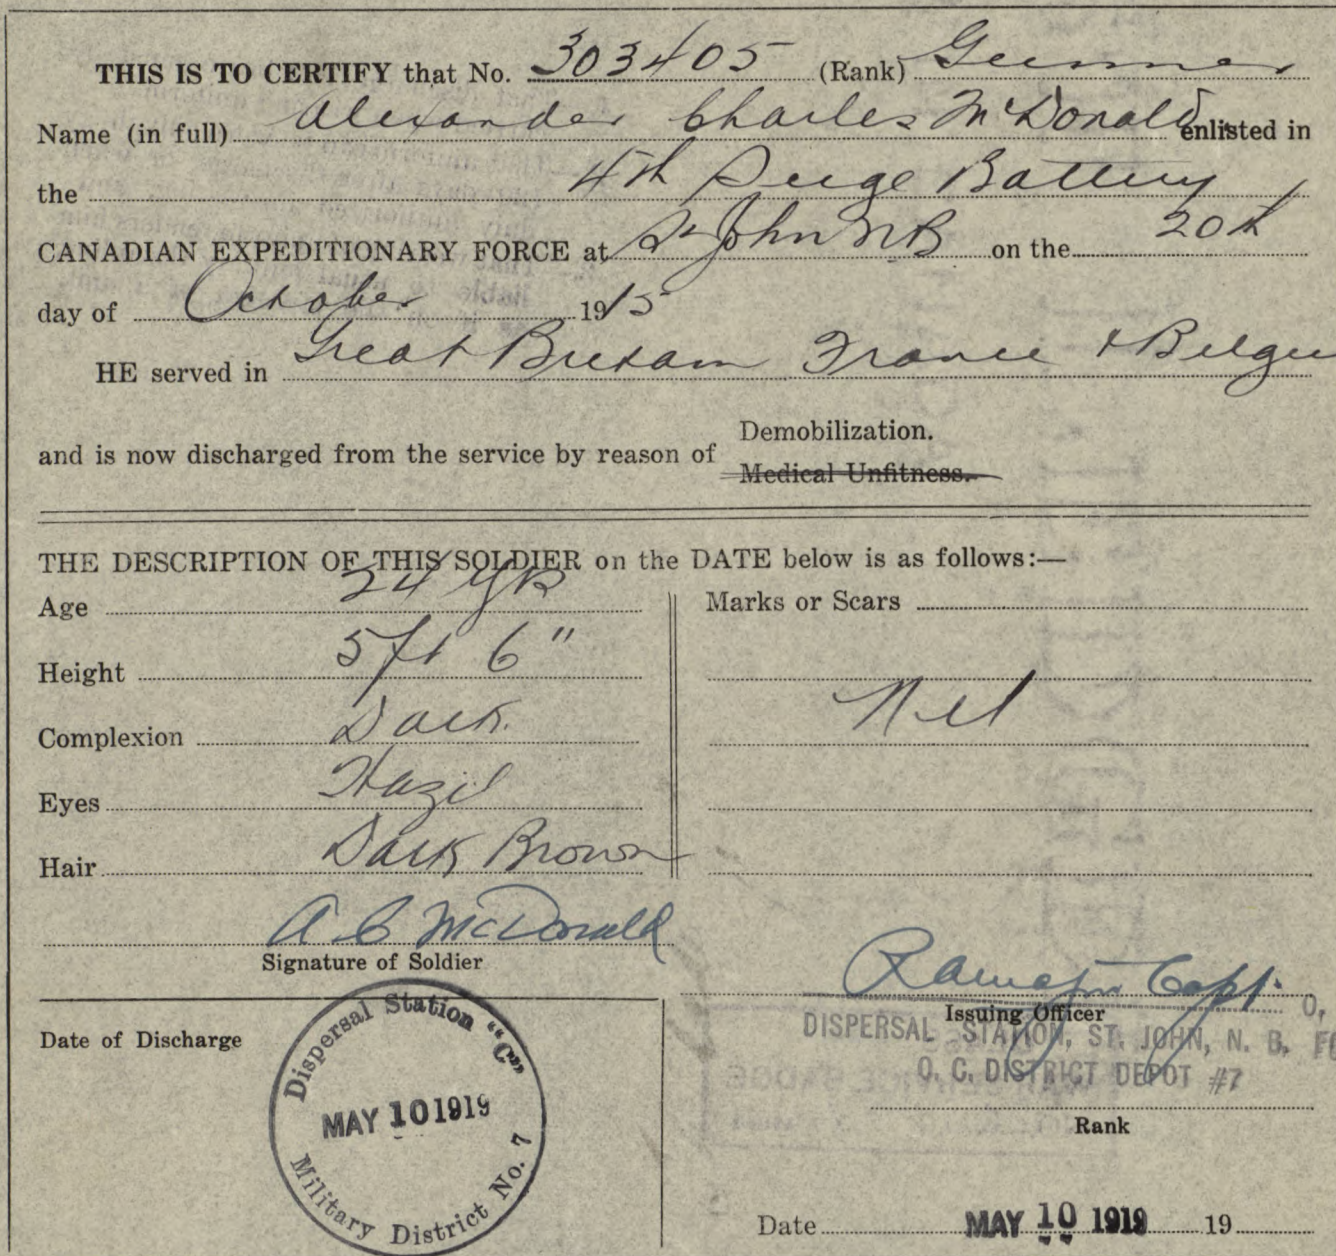 THIS IS TO CERTIFY that No. 303405 (Rank) Gunner
Name (in full) Alexander Charles McDonald enlisted in
the 4th Seige Battery
CANADIAN EXPEDITIONARY FORCE at St John NB on the 20th
day of October 1915
HE served in Great Britain France + Belgiu
and is now discharged from the service by reason of Demobilization.
Medical Unfitness.
THE DESCRIPTION OF THIS SOLDIER on the DATE below is as follows:—
Age 24 yrs
Height 5ft 6"
Complexion Dark
Eyes Hazel
Hair Dark Brown
Marks or Scars
Nil
A C McDonald
Signature of Soldier
Capt.
Issuing Officer
O,
DISPERSAL STATION, ST. JOHN, N. B. FO
O. C. DISTRICT DEPOT #7
Rank
Date of Discharge
Dispersal Station "C"
MAY 10 1919
Military District No. 7
Date MAY 10 1919 19